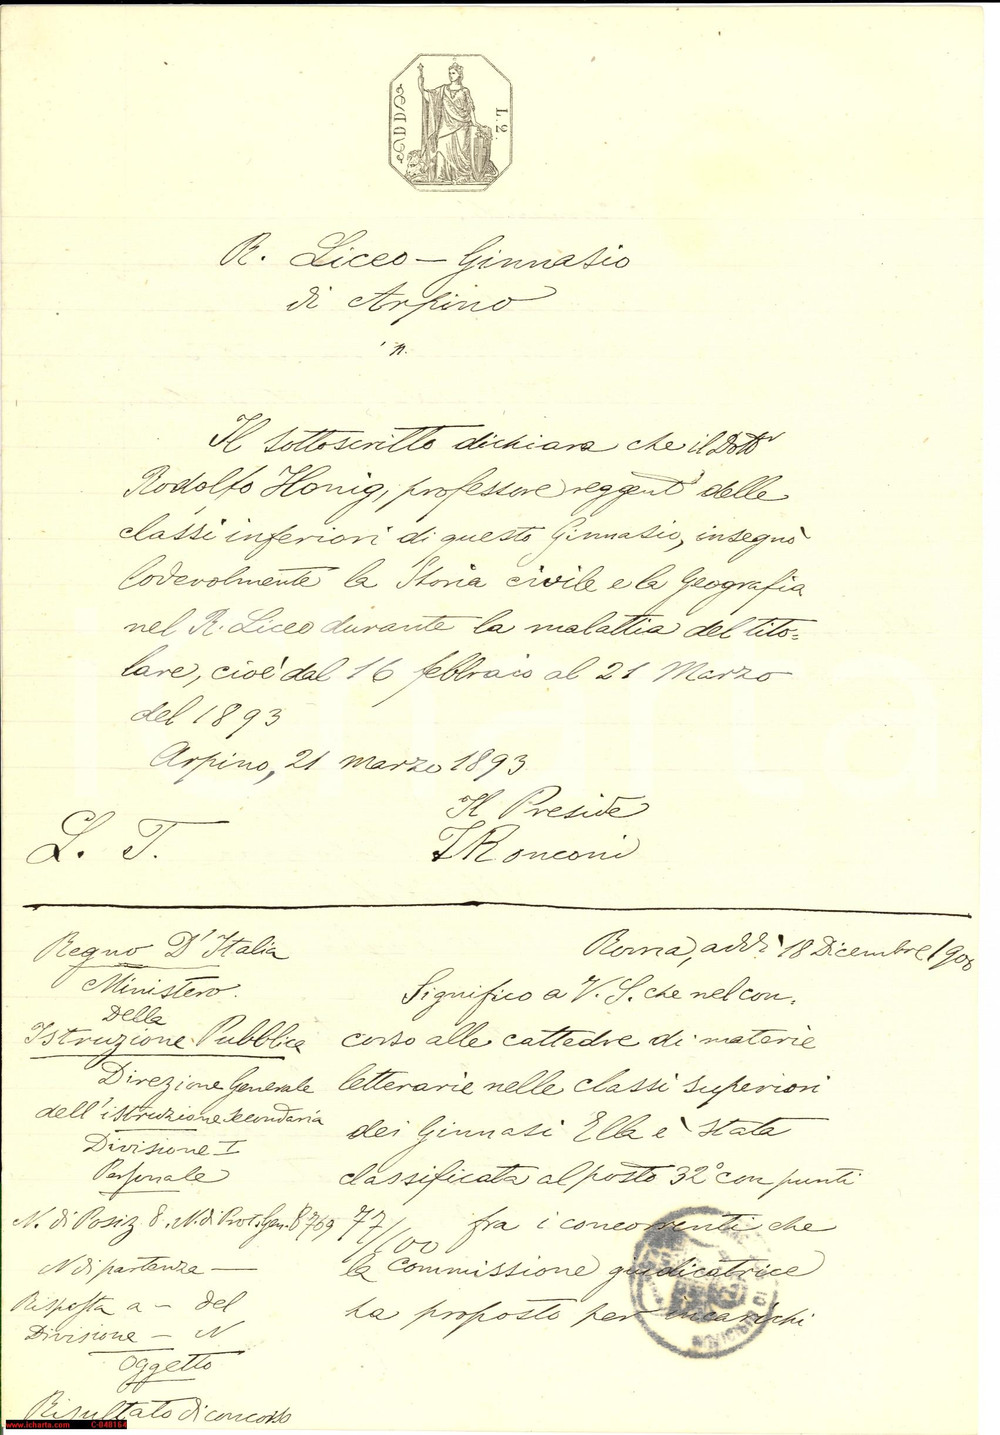 L. 2.
R. Liceo – Ginnasio
di Arpino
n.
Il sottoscritto dichiara che il Dottr
Rodolfo Honig, professore reggente delle
classi inferiori di questo Ginnasio, insegnò
lodevolmente la Storia civile e la Geografia
nel R. Liceo durante la malattia del tito=
lare, cioè dal 16 febbraio al 21 Marzo
del 1893
Arpino, 21 marzo 1893
Il Preside
L. T.
Ronconi
Regno D'Italia
Ministero
Della
Istruzione Pubblica
Direzione Generale
dell'istruzione secondaria
Divisione I
Personale
N. di Posiz 8. N. di Prot. Gen. 8769
N di partenza —
Risposta a – del
Divisione – N
Oggetto
Risultato di concorso
Roma, addì 18 Dicembre 1900
Significo a V. S. che nel con.
corso alle cattedre di materie
letterarie nelle classi superiori
dei Ginnasi Ella è stata
classificata al posto 32° con punti
77/100 fra i concorrenti che
la commissione giudicatrice
ha proposto per incarichi
www.icharta.com C-048164